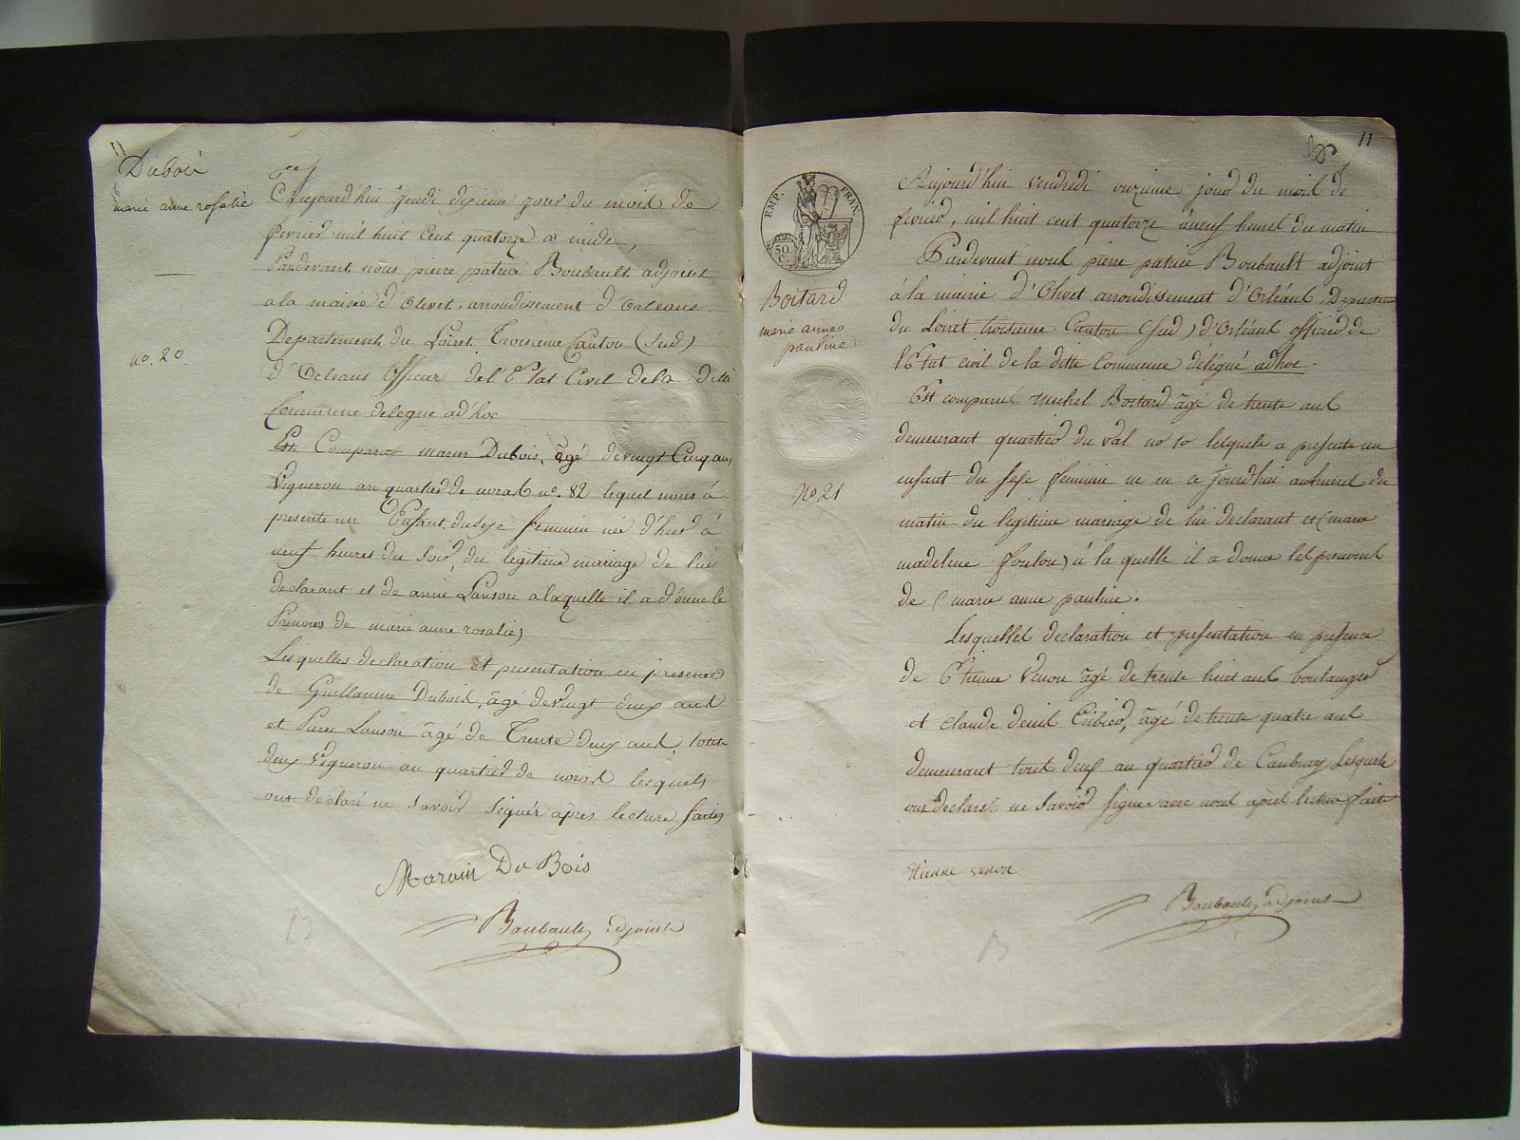 11
Dubois
marie anne rosalie
no. 20.
Cejourd'hui Jeudi dixieme jour du mois de
fevrier mil huit cent quatorze a midi,
Pardevant nous pierre patrice Boubault adjoint
a la mairie d'olivet, arroudissement d'orleans
Departement du Loiret. Troisieme Canton (Sud)
d'Orleans officier del'Etat Civil dela ditte
Commune delegué ad'hoc
Est Comparu marin Dubois, âgé devingt Cinq ans,
Vigneron au quartier de no. 82 lequel nous à
presenté un Enfant du sexe feminin née d'hier à
neuf heures du Soir, du legitime mariage de lui
declarant et de anne Lanson a laquelle il a d'onné le
Prenoms de marie anne rosalie,
Lesquelles declaration et presentation en presence
de Guillaume Dubois, âgé devingt deux ans
et Pierre Lanson âgé de Trente deux ans, touts
deux vigneron au quartier de lesquels
ont declaré ne savoir signér après lecture faites
Marain Du Bois
Boubault, adjoint
11
EMP. FRAN.
50
C.
Boitard
marie anne
pauline.
No. 21
Aujourd'hui vendredi onzieme jour du mois de
fevrier, mil huit cent quatorze à neuf heures du matin
Pardevant nous pierre patrice Boubault adjoint
à la mairie d'Olivet arroudissement d'Orléans,
du Loiret troisieme Canton (Sud) d'Orléans officier de
l'Etat civil de la ditte Commune délégué adhoc.
Est comparus michel Boitard âgé de trente ans
demeurant quartier du val no 10 lesquels a presenté un
enfant du sexe feminin né en a jourdhui du
matin du legitime mariage de lui declarant et (marie
madeleine foulon) à la quelle il a donné les prenoms
de (marie anne pauline.
Lesquelles declaration et presentation en presence
de Etienne Venon âgé de trente huit ans boulanger
et claude deuil, âgé de trente quatre ans
demeurant tout deux au quartier de Caubray Lesquels
ont declaré ne savoir signer avec nous après lecture faite
etienne venon
Boubault, adjoint